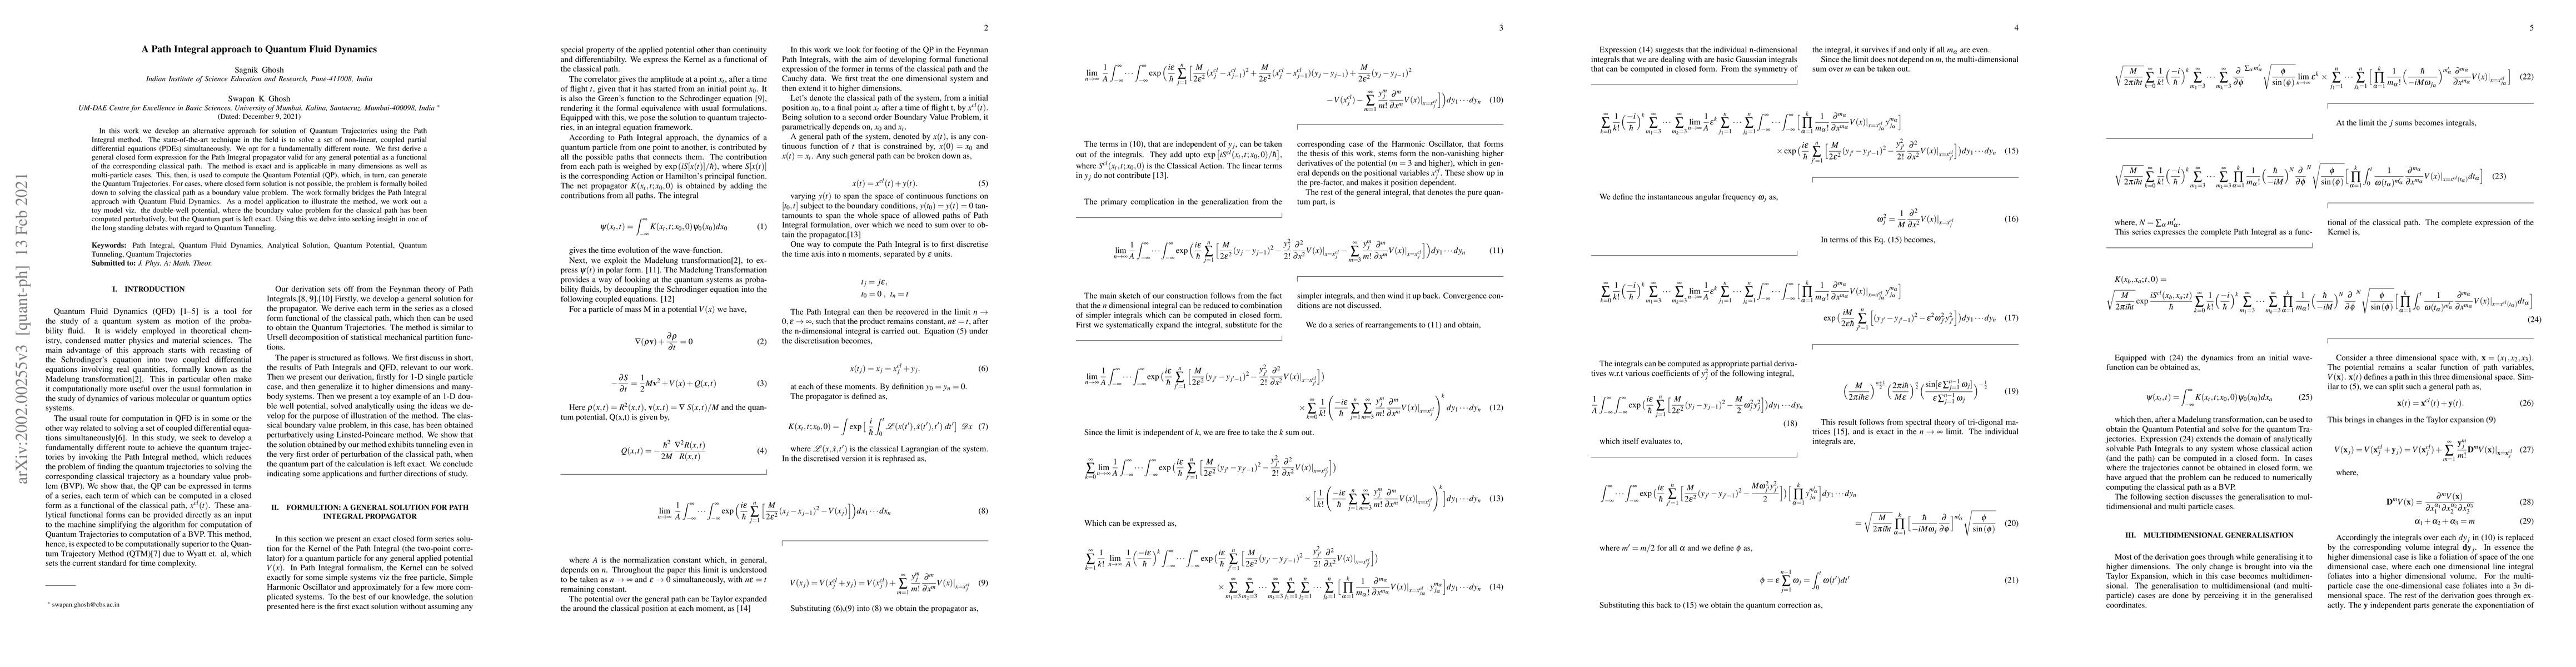 arXiv:2002.00255v3 [quant-ph] 13 Feb 2021
A Path Integral approach to Quantum Fluid Dynamics
Sagnik Ghosh
Indian Institute of Science Education and Research, Pune-411008, India
Swapan K Ghosh
UM-DAE Centre for Excellence in Basic Sciences, University of Mumbai, Kalina, Santacruz, Mumbai-400098, India *
(Dated: December 9, 2021)
In this work we develop an alternative approach for solution of Quantum Trajectories using the Path
Integral method. The state-of-the-art technique in the field is to solve a set of non-linear, coupled partial
differential equations (PDEs) simultaneously. We opt for a fundamentally different route. We first derive a
general closed form expression for the Path Integral propagator valid for any general potential as a functional
of the corresponding classical path. The method is exact and is applicable in many dimensions as well as
multi-particle cases. This, then, is used to compute the Quantum Potential (QP), which, in turn, can generate
the Quantum Trajectories. For cases, where closed form solution is not possible, the problem is formally boiled
down to solving the classical path as a boundary value problem. The work formally bridges the Path Integral
approach with Quantum Fluid Dynamics. As a model application to illustrate the method, we work out a
toy model viz. the double-well potential, where the boundary value problem for the classical path has been
computed perturbatively, but the Quantum part is left exact. Using this we delve into seeking insight in one of
the long standing debates with regard to Quantum Tunneling.
Keywords: Path Integral, Quantum Fluid Dynamics, Analytical Solution, Quantum Potential, Quantum
Tunneling, Quantum Trajectories
Submitted to: J. Phys. A: Math. Theor.
I. INTRODUCTION
Quantum Fluid Dynamics (QFD) [1–5] is a tool for
the study of a quantum system as motion of the proba-
bility fluid. It is widely employed in theoretical chem-
istry, condensed matter physics and material sciences. The
main advantage of this approach starts with recasting of
the Schrodinger's equation into two coupled differential
equations involving real quantities, formally known as the
Madelung transformation[2]. This in particular often make
it computationally more useful over the usual formulation in
the study of dynamics of various molecular or quantum optics
systems.
The usual route for computation in QFD is in some or the
other way related to solving a set of coupled differential equa-
tions simultaneously[6]. In this study, we seek to develop a
fundamentally different route to achieve the quantum trajec-
tories by invoking the Path Integral method, which reduces
the problem of finding the quantum trajectories to solving the
corresponding classical trajectory as a boundary value prob-
lem (BVP). We show that, the QP can be expressed in terms
of a series, each term of which can be computed in a closed
form as a functional of the classical path, x^{cl}(t). These ana-
lytical functional forms can be provided directly as an input
to the machine simplifying the algorithm for computation of
Quantum Trajectories to computation of a BVP. This method,
hence, is expected to be computationally superior to the Quan-
tum Trajectory Method (QTM)[7] due to Wyatt et. al, which
sets the current standard for time complexity.
* swapan.ghosh@cbs.ac.in
Our derivation sets off from the Feynman theory of Path
Integrals.[8, 9].[10] Firstly, we develop a general solution for
the propagator. We derive each term in the series as a closed
form functional of the classical path, which then can be used
to obtain the Quantum Trajectories. The method is similar to
Ursell decomposition of statistical mechanical partition func-
tions.
The paper is structured as follows. We first discuss in short,
the results of Path Integrals and QFD, relevant to our work.
Then we present our derivation, firstly for 1-D single particle
case, and then generalize it to higher dimensions and many-
body systems. Then we present a toy example of an 1-D dou-
ble well potential, solved analytically using the ideas we de-
velop for the purpose of illustration of the method. The clas-
sical boundary value problem, in this case, has been obtained
perturbatively using Linsted-Poincare method. We show that
the solution obtained by our method exhibits tunneling even in
the very first order of perturbation of the classical path, when
the quantum part of the calculation is left exact. We conclude
indicating some applications and further directions of study.
II. FORMULTION: A GENERAL SOLUTION FOR PATH
INTEGRAL PROPAGATOR
In this section we present an exact closed form series solu-
tion for the Kernel of the Path Integral (the two-point corre-
lator) for a quantum particle for any general applied potential
V(x). In Path Integral formalism, the Kernel can be solved
exactly for some simple systems viz the free particle, Simple
Harmonic Oscillator and approximately for a few more com-
plicated systems. To the best of our knowledge, the solution
presented here is the first exact solution without assuming any
2
special property of the applied potential other than continuity
and differentiabilty. We express the Kernel as a functional of
the classical path.
The correlator gives the amplitude at a point x_t, after a time
of flight t, given that it has started from an initial point x_0. It
is also the Green's function to the Schrodinger equation [9],
rendering it the formal equivalence with usual formulations.
Equipped with this, we pose the solution to quantum trajecto-
ries, in an integral equation framework.
According to Path Integral approach, the dynamics of a
quantum particle from one point to another, is contributed by
all the possible paths that connects them. The contribution
from each path is weighed by exp(iS[x(t)]/ħ), where S[x(t)]
is the corresponding Action or Hamilton's principal function.
The net propagator K(x_t,t;x_0,0) is obtained by adding the
contributions from all paths. The integral
ψ(x_t,t) = ∫_{-∞}^{∞} K(x_t,t;x_0,0)ψ_0(x_0)dx_0 (1)
gives the time evolution of the wave-function.
Next, we exploit the Madelung transformation[2], to ex-
press ψ(t) in polar form. [11]. The Madelung Transformation
provides a way of looking at the quantum systems as proba-
bility fluids, by decoupling the Schrodinger equation into the
following coupled equations. [12]
For a particle of mass M in a potential V(x) we have,
∇(ρv) + ∂ρ/∂t = 0 (2)
−∂S/∂t = 1/2 Mv² + V(x) + Q(x,t) (3)
Here ρ(x,t) = R²(x,t), v(x,t) = ∇ S(x,t)/M and the quan-
tum potential, Q(x,t) is given by,
Q(x,t) = −ħ²/2M ∇²R(x,t)/R(x,t) (4)
In this work we look for footing of the QP in the Feynman
Path Integrals, with the aim of developing formal functional
expression of the former in terms of the classical path and the
Cauchy data. We first treat the one dimensional system and
then extend it to higher dimensions.
Let's denote the classical path of the system, from a initial
position x_0, to a final point x_t after a time of flight t, by x^{cl}(t).
Being solution to a second order Boundary Value Problem, it
parametrically depends on, x_0 and x_t.
A general path of the system, denoted by x(t), is any con-
tinuous function of t that is constrained by, x(0) = x_0 and
x(t) = x_t. Any such general path can be broken down as,
x(t) = x^{cl}(t) + y(t). (5)
varying y(t) to span the space of continuous functions on
[t_0,t] subject to the boundary conditions, y(t_0) = y(t) = 0 tan-
tamounts to span the whole space of allowed paths of Path
Integral formulation, over which we need to sum over to ob-
tain the propagator.[13]
One way to compute the Path Integral is to first discretise
the time axis into n moments, separated by ε units.
t_j = jε,
t_0 = 0 , t_n = t
The Path Integral can then be recovered in the limit n →
0, ε → ∞, such that the product remains constant, nε = t, after
the n-dimensional integral is carried out. Equation (5) under
the discretisation becomes,
x(t_j) = x_j = x_j^{cl} + y_j. (6)
at each of these moments. By definition y_0 = y_n = 0.
The propagator is defined as,
K(x_t,t;x_0,0) = ∫ exp[ i/ħ ∫_0^t ℒ(x(t′),ẋ(t′),t′) dt′] 𝒟x (7)
where ℒ(x,ẋ,t′) is the classical Lagrangian of the system.
In the discretised version it is rephrased as,
lim_{n→∞} 1/A ∫_{-∞}^{∞} ··· ∫_{-∞}^{∞} exp( iε/ħ Σ_{j=1}^{n} [ M/2ε² (x_j − x_{j−1})² − V(x_j)] )dx_1···dx_n (8)
where A is the normalization constant which, in general,
depends on n. Throughout the paper this limit is understood
to be taken as n → ∞ and ε → 0 simultaneously, with nε = t
remaining constant.
The potential over the general path can be Taylor expanded
the around the classical position at each moment, as [14]
V(x_j) = V(x_j^{cl} + y_j) = V(x_j^{cl}) + Σ_{m=1}^{∞} y_j^m/m! ∂^m/∂x^m V(x)|_{x=x_j^{cl}} (9)
Substituting (6),(9) into (8) we obtain the propagator as,
3
lim_{n→∞} 1/A ∫_{-∞}^{∞} ··· ∫_{-∞}^{∞} exp( iε/ħ Σ_{j=1}^{n} [ M/2ε² (x_j^{cl} − x_{j−1}^{cl})² + M/2ε² (x_j^{cl} − x_{j−1}^{cl})(y_j − y_{j−1}) + M/2ε² (y_j − y_{j−1})²
− V(x_j^{cl}) − Σ_{m=1}^{∞} y_j^m/m! ∂^m/∂x^m V(x)|_{x=x_j^{cl}}] )dy_1···dy_n (10)
The terms in (10), that are independent of y_j, can be taken
out of the integrals. They add upto exp[iS^{cl}(x_t,t;x_0,0)/ħ],
where S^{cl}(x_t,t;x_0,0) is the Classical Action. The linear terms
in y_j do not contribute [13].
The primary complication in the generalization from the
corresponding case of the Harmonic Oscillator, that forms
the thesis of this work, stems form the non-vanishing higher
derivatives of the potential (m = 3 and higher), which in gen-
eral depends on the positional variables x_j^{cl}. These show up in
the pre-factor, and makes it position dependent.
The rest of the general integral, that denotes the pure quan-
tum part, is
lim_{n→∞} 1/A ∫_{-∞}^{∞} ··· ∫_{-∞}^{∞} exp( iε/ħ Σ_{j=1}^{n} [ M/2ε² (y_j − y_{j−1})² − y_j²/2! ∂²/∂x² V(x)|_{x=x_j^{cl}} − Σ_{m=3}^{∞} y_j^m/m! ∂^m/∂x^m V(x)|_{x=x_j^{cl}}] )dy_1···dy_n (11)
The main sketch of our construction follows from the fact
that the n dimensional integral can be reduced to combination
of simpler integrals which can be computed in closed form.
First we systematically expand the integral, substitute for the
simpler integrals, and then wind it up back. Convergence con-
ditions are not discussed.
We do a series of rearrangements to (11) and obtain,
lim_{n→∞} 1/A ∫_{-∞}^{∞} ··· ∫_{-∞}^{∞} exp( iε/ħ Σ_{j′=1}^{n} [ M/2ε² (y_{j′} − y_{j′−1})² − y_j²/2! ∂²/∂x² V(x)|_{x=x_j^{cl}}] )
× Σ_{k=0}^{∞} 1/k! ( −iε/ħ Σ_{j=1}^{n} Σ_{m=3}^{∞} y_j^m/m! ∂^m/∂x^m V(x)|_{x=x_j^{cl}} )^k dy_1···dy_n (12)
Since the limit is independent of k, we are free to take the k sum out.
Σ_{k=0}^{∞} lim_{n→∞} 1/A ∫_{-∞}^{∞} ··· ∫_{-∞}^{∞} exp( iε/ħ Σ_{j′=1}^{n} [ M/2ε² (y_{j′} − y_{j′−1})² − y_j²/2! ∂²/∂x² V(x)|_{x=x_j^{cl}}] )
× [ 1/k! ( −iε/ħ Σ_{j=1}^{n} Σ_{m=3}^{∞} y_j^m/m! ∂^m/∂x^m V(x)|_{x=x_j^{cl}} )^k ]dy_1···dy_n (13)
Which can be expressed as,
Σ_{k}^{∞} 1/k! lim_{n→∞} 1/A (−iε/ħ)^k ∫_{-∞}^{∞} ··· ∫_{-∞}^{∞} exp( iε/ħ Σ_{j′=1}^{n} [ M/2ε² (y_{j′} − y_{j′−1})² − y_j²/2! ∂²/∂x² V(x)|_{x=x_j^{cl}}] )
× Σ_{m_1=3}^{∞} Σ_{m_2=3}^{∞} ··· Σ_{m_k=3}^{∞} Σ_{j_1=1}^{n} Σ_{j_2=1}^{n} ··· Σ_{j_k=1}^{n} [ Π_{α=1}^{k} 1/m_α! ∂^{m_α}/∂x^{m_α} V(x)|_{x=x_{jα}^{cl}} y_{jα}^{m_α} ]dy_1···dy_n (14)
4
Expression (14) suggests that the individual n-dimensional
integrals that we are dealing with are basic Gaussian integrals
that can be computed in closed form. From the symmetry of
the integral, it survives if and only if all m_α are even.
Since the limit does not depend on m, the multi-dimensional
sum over m can be taken out.
Σ_{k=0}^{∞} 1/k! (−i/ħ)^k Σ_{m_1=3}^{∞} ··· Σ_{m_k=3}^{∞} lim_{n→∞} 1/A ε^k Σ_{j_1=1}^{n} ··· Σ_{j_k=1}^{n} ∫_{-∞}^{∞} ··· ∫_{-∞}^{∞} [ Π_{α=1}^{k} 1/m_α! ∂^{m_α}/∂x^{m_α} V(x)|_{x=x_{jα}^{cl}} y_{jα}^{m_α} ]
× exp( iε/ħ Σ_{j′=1}^{n} [ M/2ε² (y_{j′} − y_{j′−1})² − y_j²/2! ∂²/∂x² V(x)|_{x=x_j^{cl}}] )dy_1···dy_n (15)
We define the instantaneous angular frequency ω_j as,
ω_j² = 1/M ∂²/∂x² V(x)|_{x=x_j^{cl}} (16)
In terms of this Eq. (15) becomes,
Σ_{k=0}^{∞} 1/k! (−i/ħ)^k Σ_{m_1=3}^{∞} ··· Σ_{m_k=3}^{∞} lim_{n→∞} 1/A ε^k Σ_{j_1=1}^{n} ··· Σ_{j_k=1}^{n} ∫_{-∞}^{∞} ··· ∫_{-∞}^{∞} [ Π_{α=1}^{k} 1/m_α! ∂^{m_α}/∂x^{m_α} V(x)|_{x=x_{jα}^{cl}} y_{jα}^{m_α} ]
exp( iM/2εħ Σ_{j′=1}^{n} [ (y_{j′} − y_{j′−1})² − ε²ω_{j′}²y_{j′}²] )dy_1···dy_n (17)
The integrals can be computed as appropriate partial deriva-
tives w.r.t various coefficients of y_j² of the following integral,
1/A ∫_{-∞}^{∞} ··· ∫_{-∞}^{∞} exp( iε/ħ Σ_{j=1}^{n} [ M/2ε² (y_j − y_{j−1})² − M/2 ω_j²y_j²] )dy_1···dy_n
(18)
which itself evaluates to,
(M/2πiħε)^{(n+1)/2} (2πiħ/Mε)^{n/2} ( sin[ε Σ_{j=1}^{n−1} ω_j] / ε Σ_{j=1}^{n−1} ω_j )^{−1/2} (19)
This result follows from spectral theory of tri-digonal ma-
trices [15], and is exact in the n → ∞ limit. The individual
integrals are,
∫_{-∞}^{∞} ··· ∫_{-∞}^{∞} exp( iε/ħ Σ_{j=1}^{n} [ M/2ε² (y_{j′} − y_{j′−1})² − Mω_{j′}²y_{j′}²/2 ] ) [ Π_{α=1}^{k} y_{jα}^{m_α} ]dy_1···dy_n
= √(M/2πiħt) Π_{α=1}^{k} [ ħ/−iMω_j ∂/∂φ ]^{m′_α} √(φ/sin(φ)) (20)
where m′ = m/2 for all α and we define φ as,
φ = ε Σ_{j=1}^{n−1} ω_j = ∫_0^t ω(t′)dt′ (21)
Substituting this back to (15) we obtain the quantum correction as,
5
√(M/2πiħt) Σ_{k=0}^{∞} 1/k! (−i/ħ)^k Σ_{m_1=3}^{∞} ··· Σ_{m_k=3}^{∞} ∂/∂φ^{Σ_α m′_α} √(φ/sin(φ)) lim_{n→∞} ε^k × Σ_{j_1=1}^{n} ··· Σ_{j_k=1}^{n} [ Π_{α=1}^{k} 1/m_α! (ħ/−iMω_{jα})^{m′_α} ∂^{m_α}/∂x^{m_α} V(x)|_{x=x_{jα}^{cl}} ] (22)
At the limit the j sums becomes integrals,
√(M/2πiħt) Σ_{k=0}^{∞} 1/k! (−i/ħ)^k Σ_{m_1=3}^{∞} ··· Σ_{m_k=3}^{∞} Π_{α=1}^{k} 1/m_α! (ħ/−iM)^N ∂/∂φ^N √(φ/sin(φ)) [ Π_{α=1}^{k} ∫_0^t 1/ω(t_α)^{m′_α} ∂^{m_α}/∂x^{m_α} V(x)|_{x=x^{cl}(t_α)} dt_α ] (23)
where, N = Σ_α m′_α.
This series expresses the complete Path Integral as a func-
tional of the classical path. The complete expression of the
Kernel is,
K(x_b,x_a;t,0) =
√(M/2πiħt) exp iS^{cl}(x_b,x_a;t)/ħ Σ_{k=0}^{∞} 1/k! (−i/ħ)^k Σ_{m_1=3}^{∞} ··· Σ_{m_k=3}^{∞} Π_{α=1}^{k} 1/m_α! (ħ/−iM)^N ∂/∂φ^N √(φ/sin(φ)) [ Π_{α=1}^{k} ∫_0^t 1/ω(t_α)^{m′_α} ∂^{m_α}/∂x^{m_α} V(x)|_{x=x^{cl}(t_α)} dt_α ]
(24)
Equipped with (24) the dynamics from an initial wave-
function can be obtained as,
ψ(x_t,t) = ∫_{-∞}^{∞} K(x_t,t;x_0,0)ψ_0(x_0)dx_a (25)
which then, after a Madelung transformation, can be used to
obtain the Quantum Potential and solve for the quantum Tra-
jectories. Expression (24) extends the domain of analytically
solvable Path Integrals to any system whose classical action
(and the path) can be computed in a closed form. In cases
where the trajectories cannot be obtained in closed form, we
have argued that the problem can be reduced to numerically
computing the classical path as a BVP.
The following section discusses the generalisation to mul-
tidimensional and multi particle cases.
III. MULTIDIMENSIONAL GENERALISATION
Most of the derivation goes through while generalising it to
higher dimensions. The only change is brought into via the
Taylor Expansion, which in this case becomes multidimen-
sional. The generalisation to multidimensional (and multi-
particle) cases are done by perceiving it in the generalised
coordinates.
Consider a three dimensional space with, x = (x_1,x_2,x_3).
The potential remains a scalar function of path variables,
V(x). x(t) defines a path in this three dimensional space. Sim-
ilar to (5), we can split such a general path as,
x(t) = x^{cl}(t) + y(t). (26)
This brings in changes in the Taylor expansion (9)
V(x_j) = V(x_j^{cl} + y_j) = V(x_j^{cl}) + Σ_{m=1}^{∞} y_j^m/m! D^m V(x)|_{x=x_j^{cl}} (27)
where,
D^m V(x) = ∂^m V(x)/∂x_1^{α_1} ∂x_2^{α_2} ∂x_3^{α_3} (28)
α_1 + α_2 + α_3 = m (29)
Accordingly the integrals over each dy_j in (10) is replaced
by the corresponding volume integral dy_j. In essence the
higher dimensional case is like a foliation of space of the one
dimensional case, where each one dimensional line integral
foliates into a higher dimensional volume. For the multi-
particle case the one-dimensional case foliates into a 3n di-
mensional space. The rest of the derivation goes through ex-
actly. The y independent parts generate the exponential of